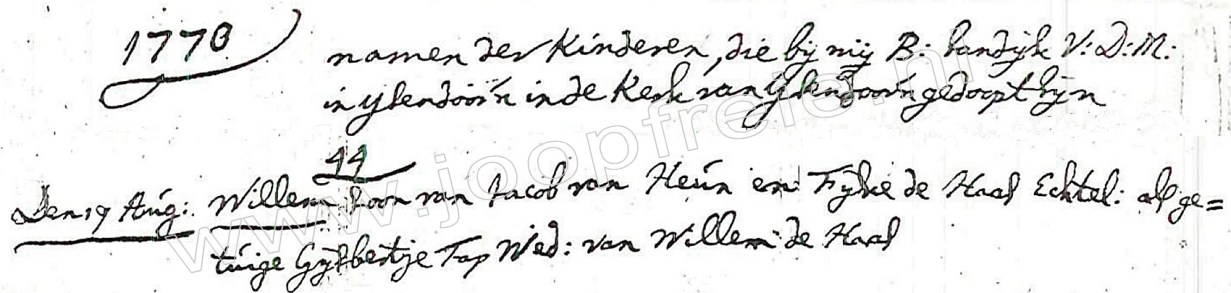 1770
namen der Kinderen, die bij mij B: Vandijk V: D: M:
in ysendoorn in de Kerk van Ysendoorn gedoopt zyn
44
Den 19 Aug: Willem Zoon van Jacob van Heun en Fijke de Haas Echtel: als ge=
tuige Gysbertje Tap Wed: van Willem de Haas
www.joopfreie.nl